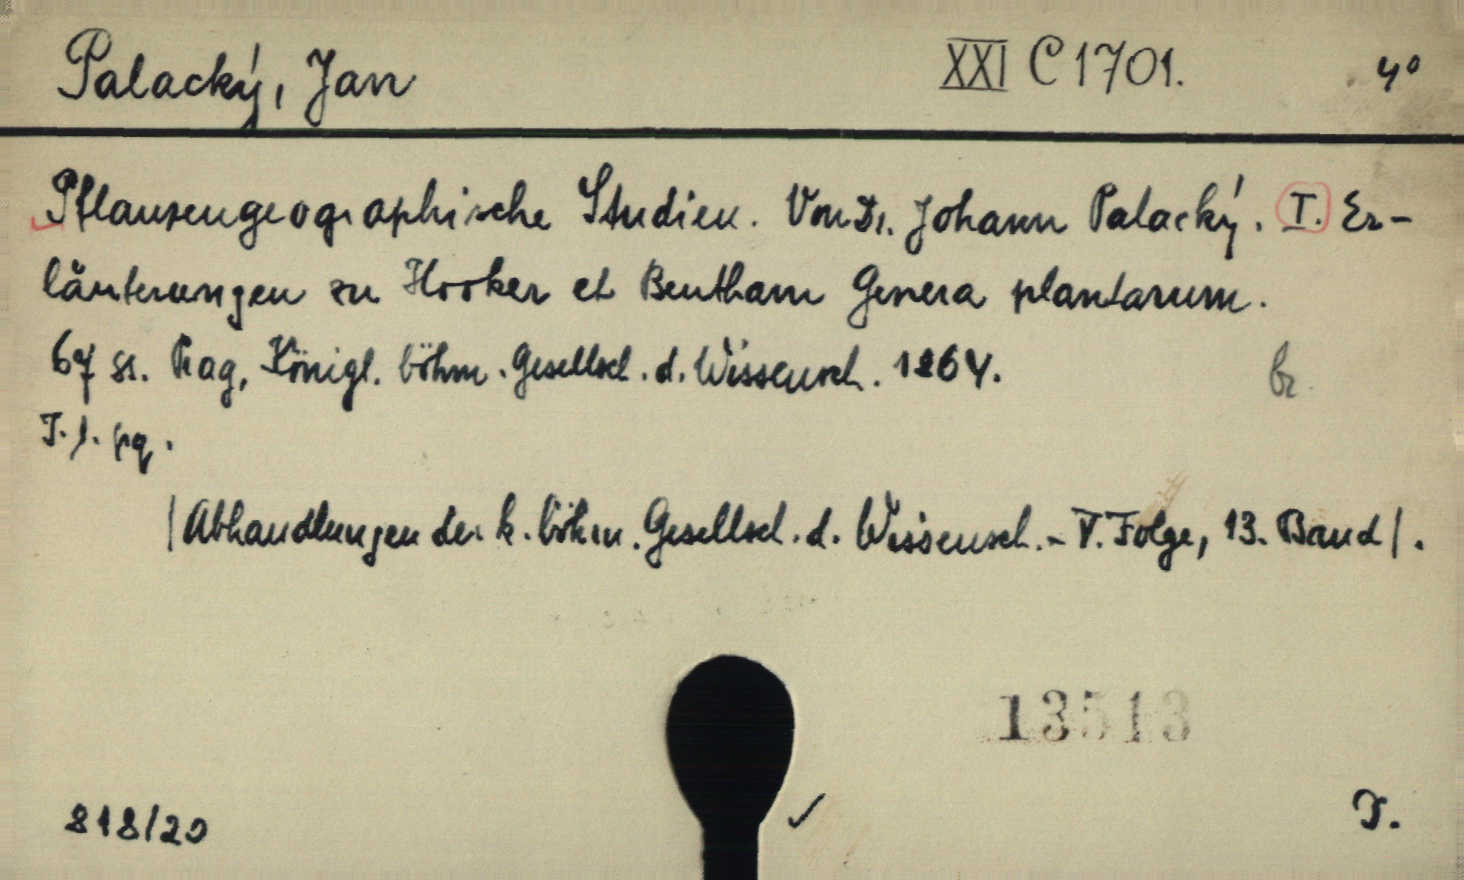 Palacký, Jan XXI C 1701. 4°
Pflanzengeographische Studien. Von Dr. Johann Palacký. I. Er-
läuterungen zu Hooker et Bentham Genera plantarum.
67 ss. Prag, Königl. böhm. Gesellsch. d. Wissensch. 1864. br.
I. l. pq.
/Abhandlungen der k. böhm. Gesellsch. d. Wissensch. - V. Folge, 13. Band/.
13513
818/20